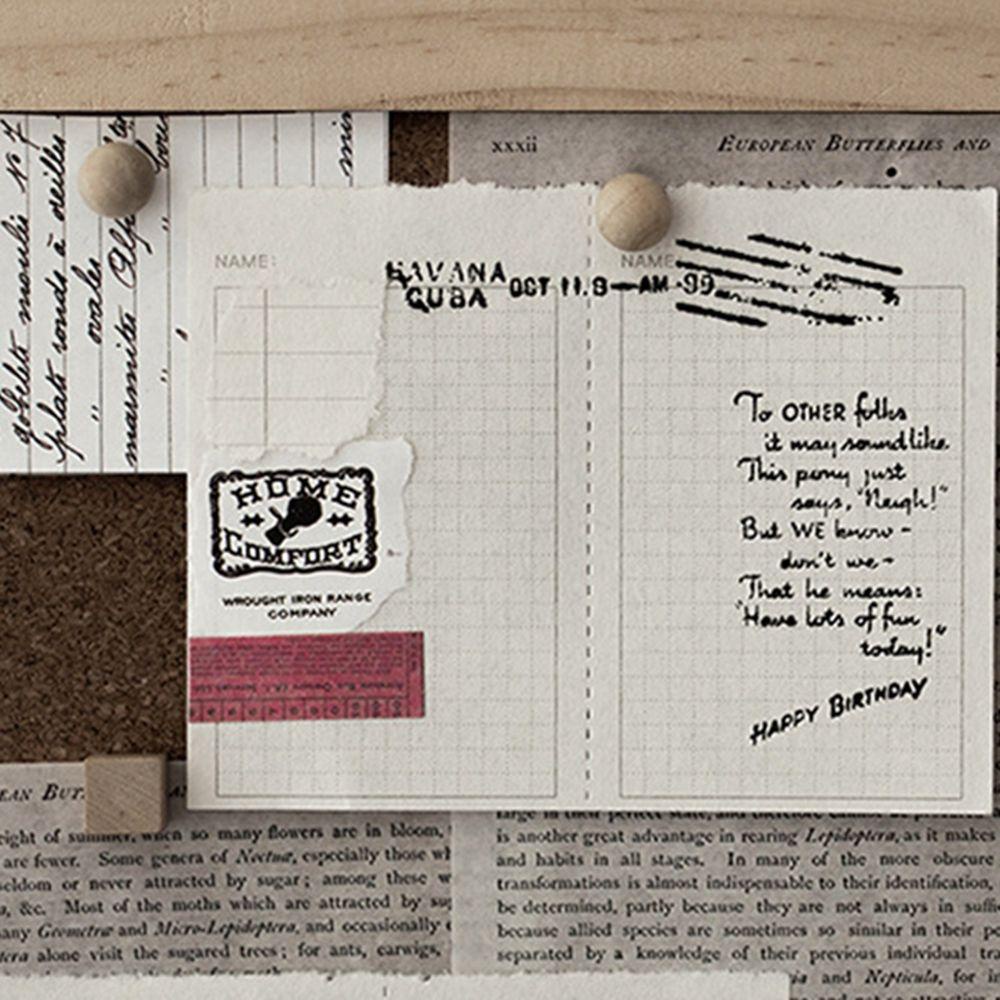 gobelets moulés N° 7
plats ronds à oreilles
" ovales
marmites
min
xxxii
EUROPEAN BUTTERFLIES AND
NAME:
NAME
HAVANA
CUBA
OCT 11.9—AM 99
HOME
COMFORT
WROUGHT IRON RANGE
COMPANY
To OTHER folks
it may sound like
This pony just
says, "Neigh!"
But WE know –
don't we –
That he means:
"Have lots of fun
today!"
HAPPY BIRTHDAY
EAN BUT
eight of summer, when so many flowers are in bloom,
are fewer. Some genera of Noctuæ, especially those wh
seldom or never attracted by sugar; among these w
, &c. Most of the moths which are attracted by su
any Geometræ and Micro-Lepidoptera, and occasionally
tera alone visit the sugared trees; for ants, earwigs,
large in their perfect state, and therefore
is another great advantage in rearing Lepidoptera, as it makes
and habits in all stages. In many of the more obscure
transformations is almost indispensable to their identification,
be determined, partly because they are not always in suffi
because allied species are sometimes so similar in their pe
separated by a knowledge of their previous individual tra
and Nepticula, for in